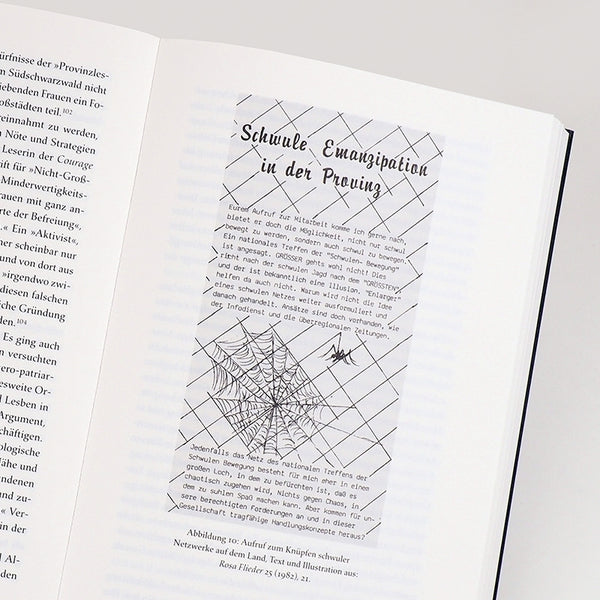 ürfnisse der »Provinzles-
n Südschwarzwald nicht
iebenden Frauen ein Fo-
oßstädten teil.102
reinnahmt zu werden,
Nöte und Strategien
Leserin der Courage
rift für »Nicht-Groß-
Minderwertigkeits-
rauen mit ganz an-
rte der Befreiung«,
.« Ein »Aktivist«,
ner scheinbar nur
und von dort aus
»irgendwo zwi-
diesen falschen
iche Gründung
den.104
Es ging auch
n versuchten
ero-patriar-
esweite Or-
Lesben in
Argument,
chäftigen.
ologische
Nähe und
ndenen
und zu-
« Ver-
in der
d Al-
den
Schwule Emanzipation
in der Provinz
Eurem Aufruf zur Mitarbeit komme ich gerne nach,
bietet er doch die Möglichkeit, nicht nur schwul
bewegt zu werden, sondern auch schwul zu bewegen.
Ein nationales Treffen der "Schwulen- Bewegung"
ist angesagt, GRÖSSER gehts wohl nicht! Dies
riecht nach der schwulen Jagd nach dem "GRÖSSTEN"
und der ist bekanntlich eine Illusion. "Enlarger"
helfen da auch nicht. Warum wird nicht die Idee
eines schwulen Netzes weiter ausformuliert und
danach gehandelt. Ansätze sind doch vorhanden, wie
der Infodienst und die überregionalen Zeitungen.
Jedenfalls das Netz des nationalen Treffens der
Schwulen Bewegung besteht für mich eher in einem
großen Loch, in dem zu befürchten ist, daß es
chaotisch zugehen wird, Nichts gegen Chaos, in
dem zu suhlen Spaß machen kann. Aber kommen für un-
sere berechtigten Forderungen an und in dieser
Gesellschaft tragfähige Handlungskonzepte heraus?
Abbildung 10: Aufruf zum Knüpfen schwuler
Netzwerke auf dem Land, Text und Illustration aus:
Rosa Flieder 25 (1982), 21.